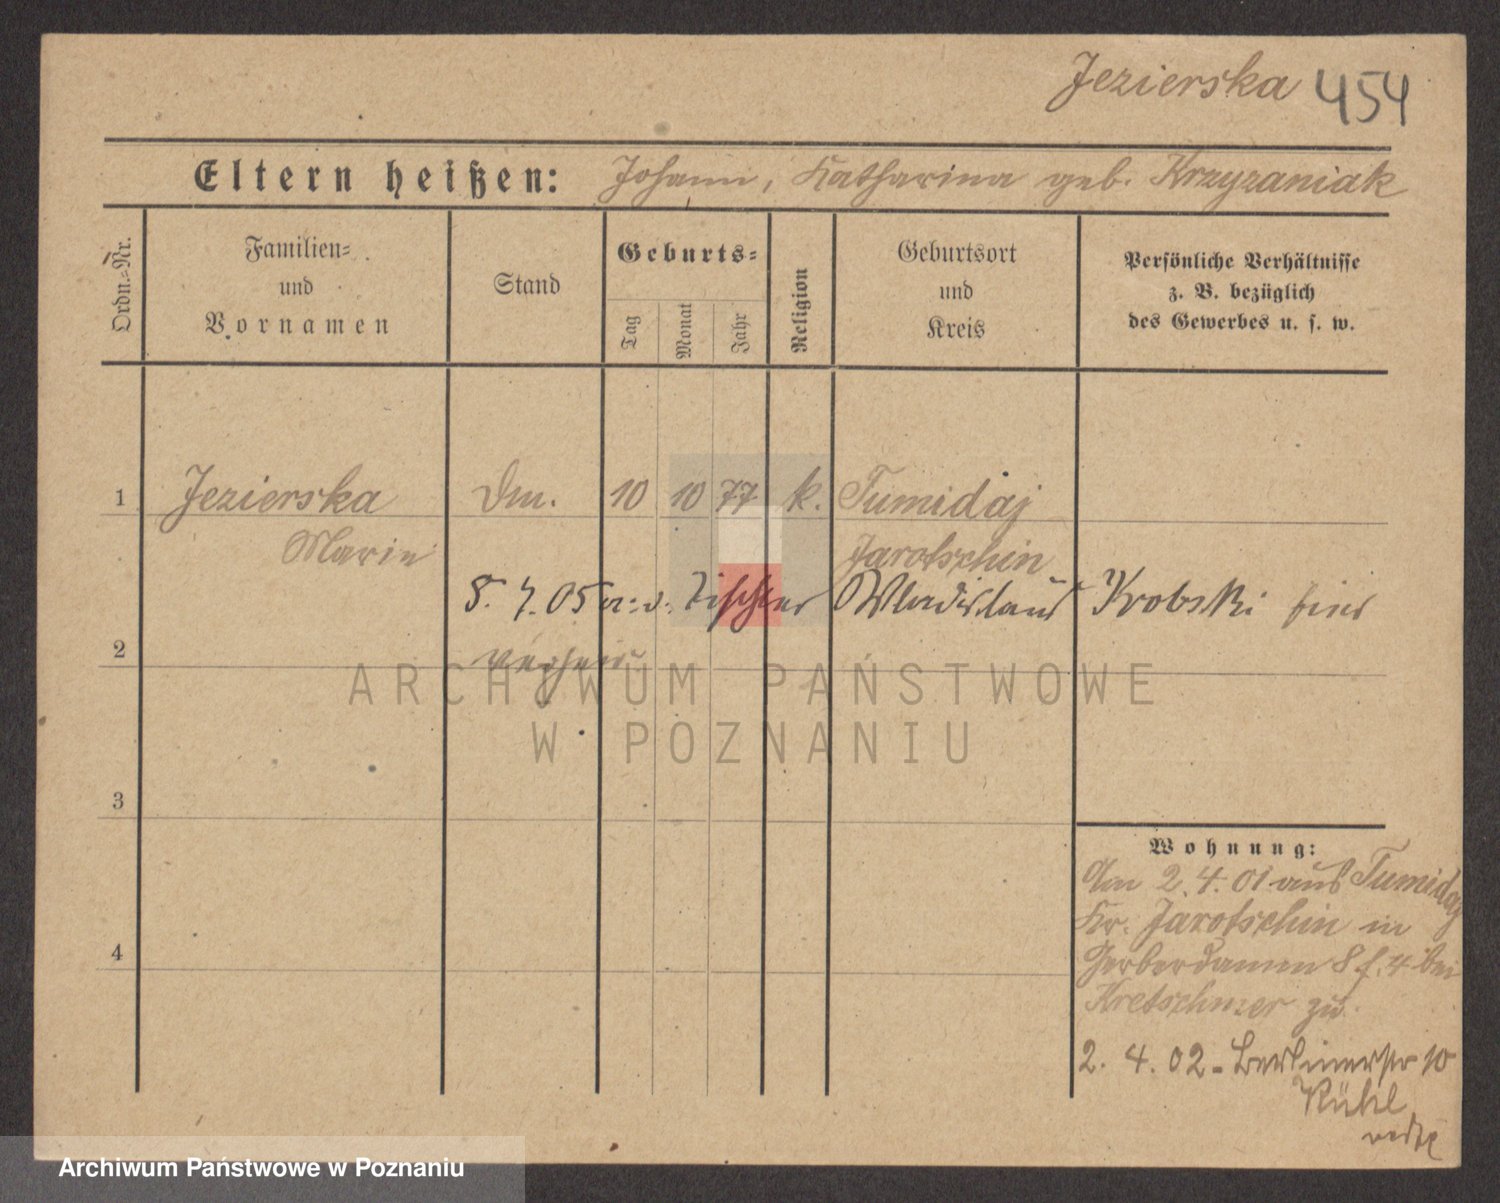 Jezierska 454
Eltern heißen: Johann, Katharina geb. Krzyzaniak
Ordn.-Nr.
Familien-
und
Vornamen
Stand
Geburts-
Tag
Monat
Jahr
Religion
Geburtsort
und
Kreis
Persönliche Verhältnisse
z. B. bezüglich
des Gewerbes u. s. w.
1 Jezierska Dm. 10 10 77 k. Tumidaj
Marie Jarotschin
8. 7. 05 a. d. Tischler Wladislaus Krobski hier
2
ARCHIWUM PAŃSTWOWE
W POZNANIU
3
Wohnung:
Am 2.4.01 aus Tumidaj
Kr. Jarotschin in
Gerberdamm 8 f. 4 bei
Kretschmer zu.
4
2. 4. 02 - Berlinerstr 10
Rühl
Archiwum Państwowe w Poznaniu